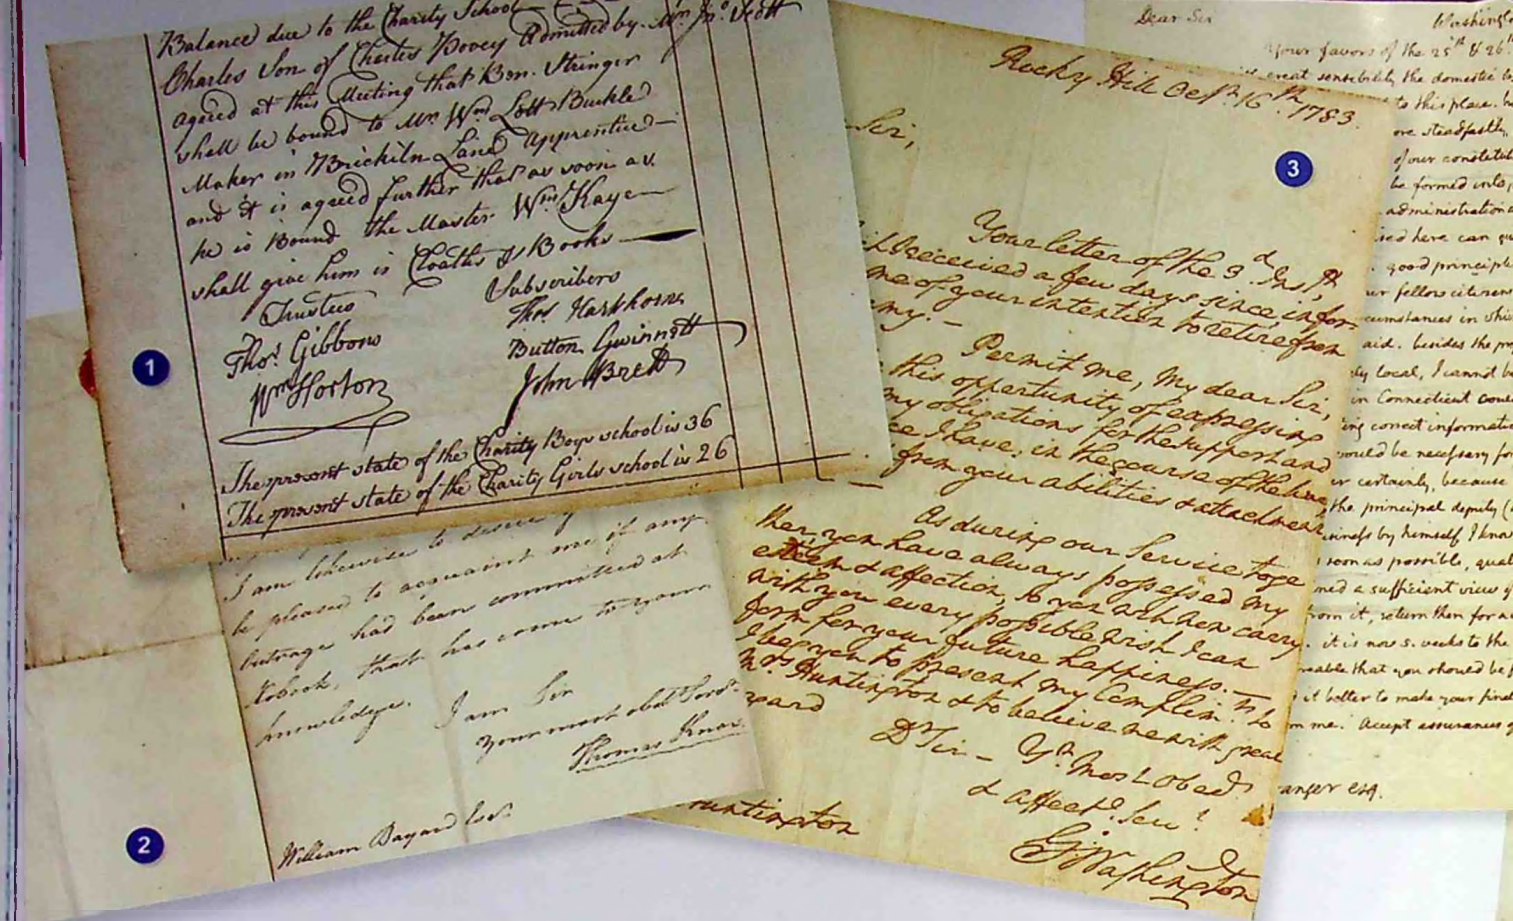 Balance due to the Charity School
Charles Son of Charles Hovey Admitted by Mr Jno Scott
agreed at this Meeting that Ben. Stringer
shall be bound to Mr Wm Lott Buckle
Maker in Brickiln Lane Apprentice
and it is agreed further that as soon as
he is Bound the Master Wm Kaye
shall give him is Cloaths & Books
Trustees
Subscribers
Thos Gibbons
Thos Harthorn
Wm Horton
Button Gwinnett
John Brett
The present state of the Charity Boys school is 36
The present state of the Charity Girls school is 26
1
I am likewise to desire
be pleased to acquaint me if any
outrage had been committed at
that has come to your
knowledge.
I am Sir
your most obdt Servt
Thomas Knox
William Bayard Esqr
2
Rocky Hill Octr 16th 1783.
Sir,
3
Your letter of the 3d Inst,
I received a few days since, infor
me of your intention to retire from
my. —
Permit me, My dear Sir,
this oppertunity of expressing
my obligations for the support and
ce I have, in the course of the War,
from your abilities & attachment
As during our Service toge
ther, you have always possessed my
esteem & affection, so you will now carry
with you every possible wish I can
form for your future happiness. —
I beg you to present my Complimts to
Mrs Huntington & to believe me with great
regard
Dr Sir — Yr Most Obedt
& affecte Servt
Go Washington
Huntington
Dear Sir
Washing
Your favors of the 25th & 26th
great sensibility the domestic
to this place.
ore steadfastly
of our constitut
be formed into,
administration
sed here can
good principle
ur fellow citizens
cumstances in whic
aid. besides the
ly local, I cannot be
in Connecticut
ing correct informatio
would be necessary for
er certainly, because
the principal deputy
siness by himself I know
soon as possible,
ned a sufficient view of
from it, return then for a
it is now 5. weeks to the
reable that you should be
it better to make your final
me. Accept assurances
anger esq.